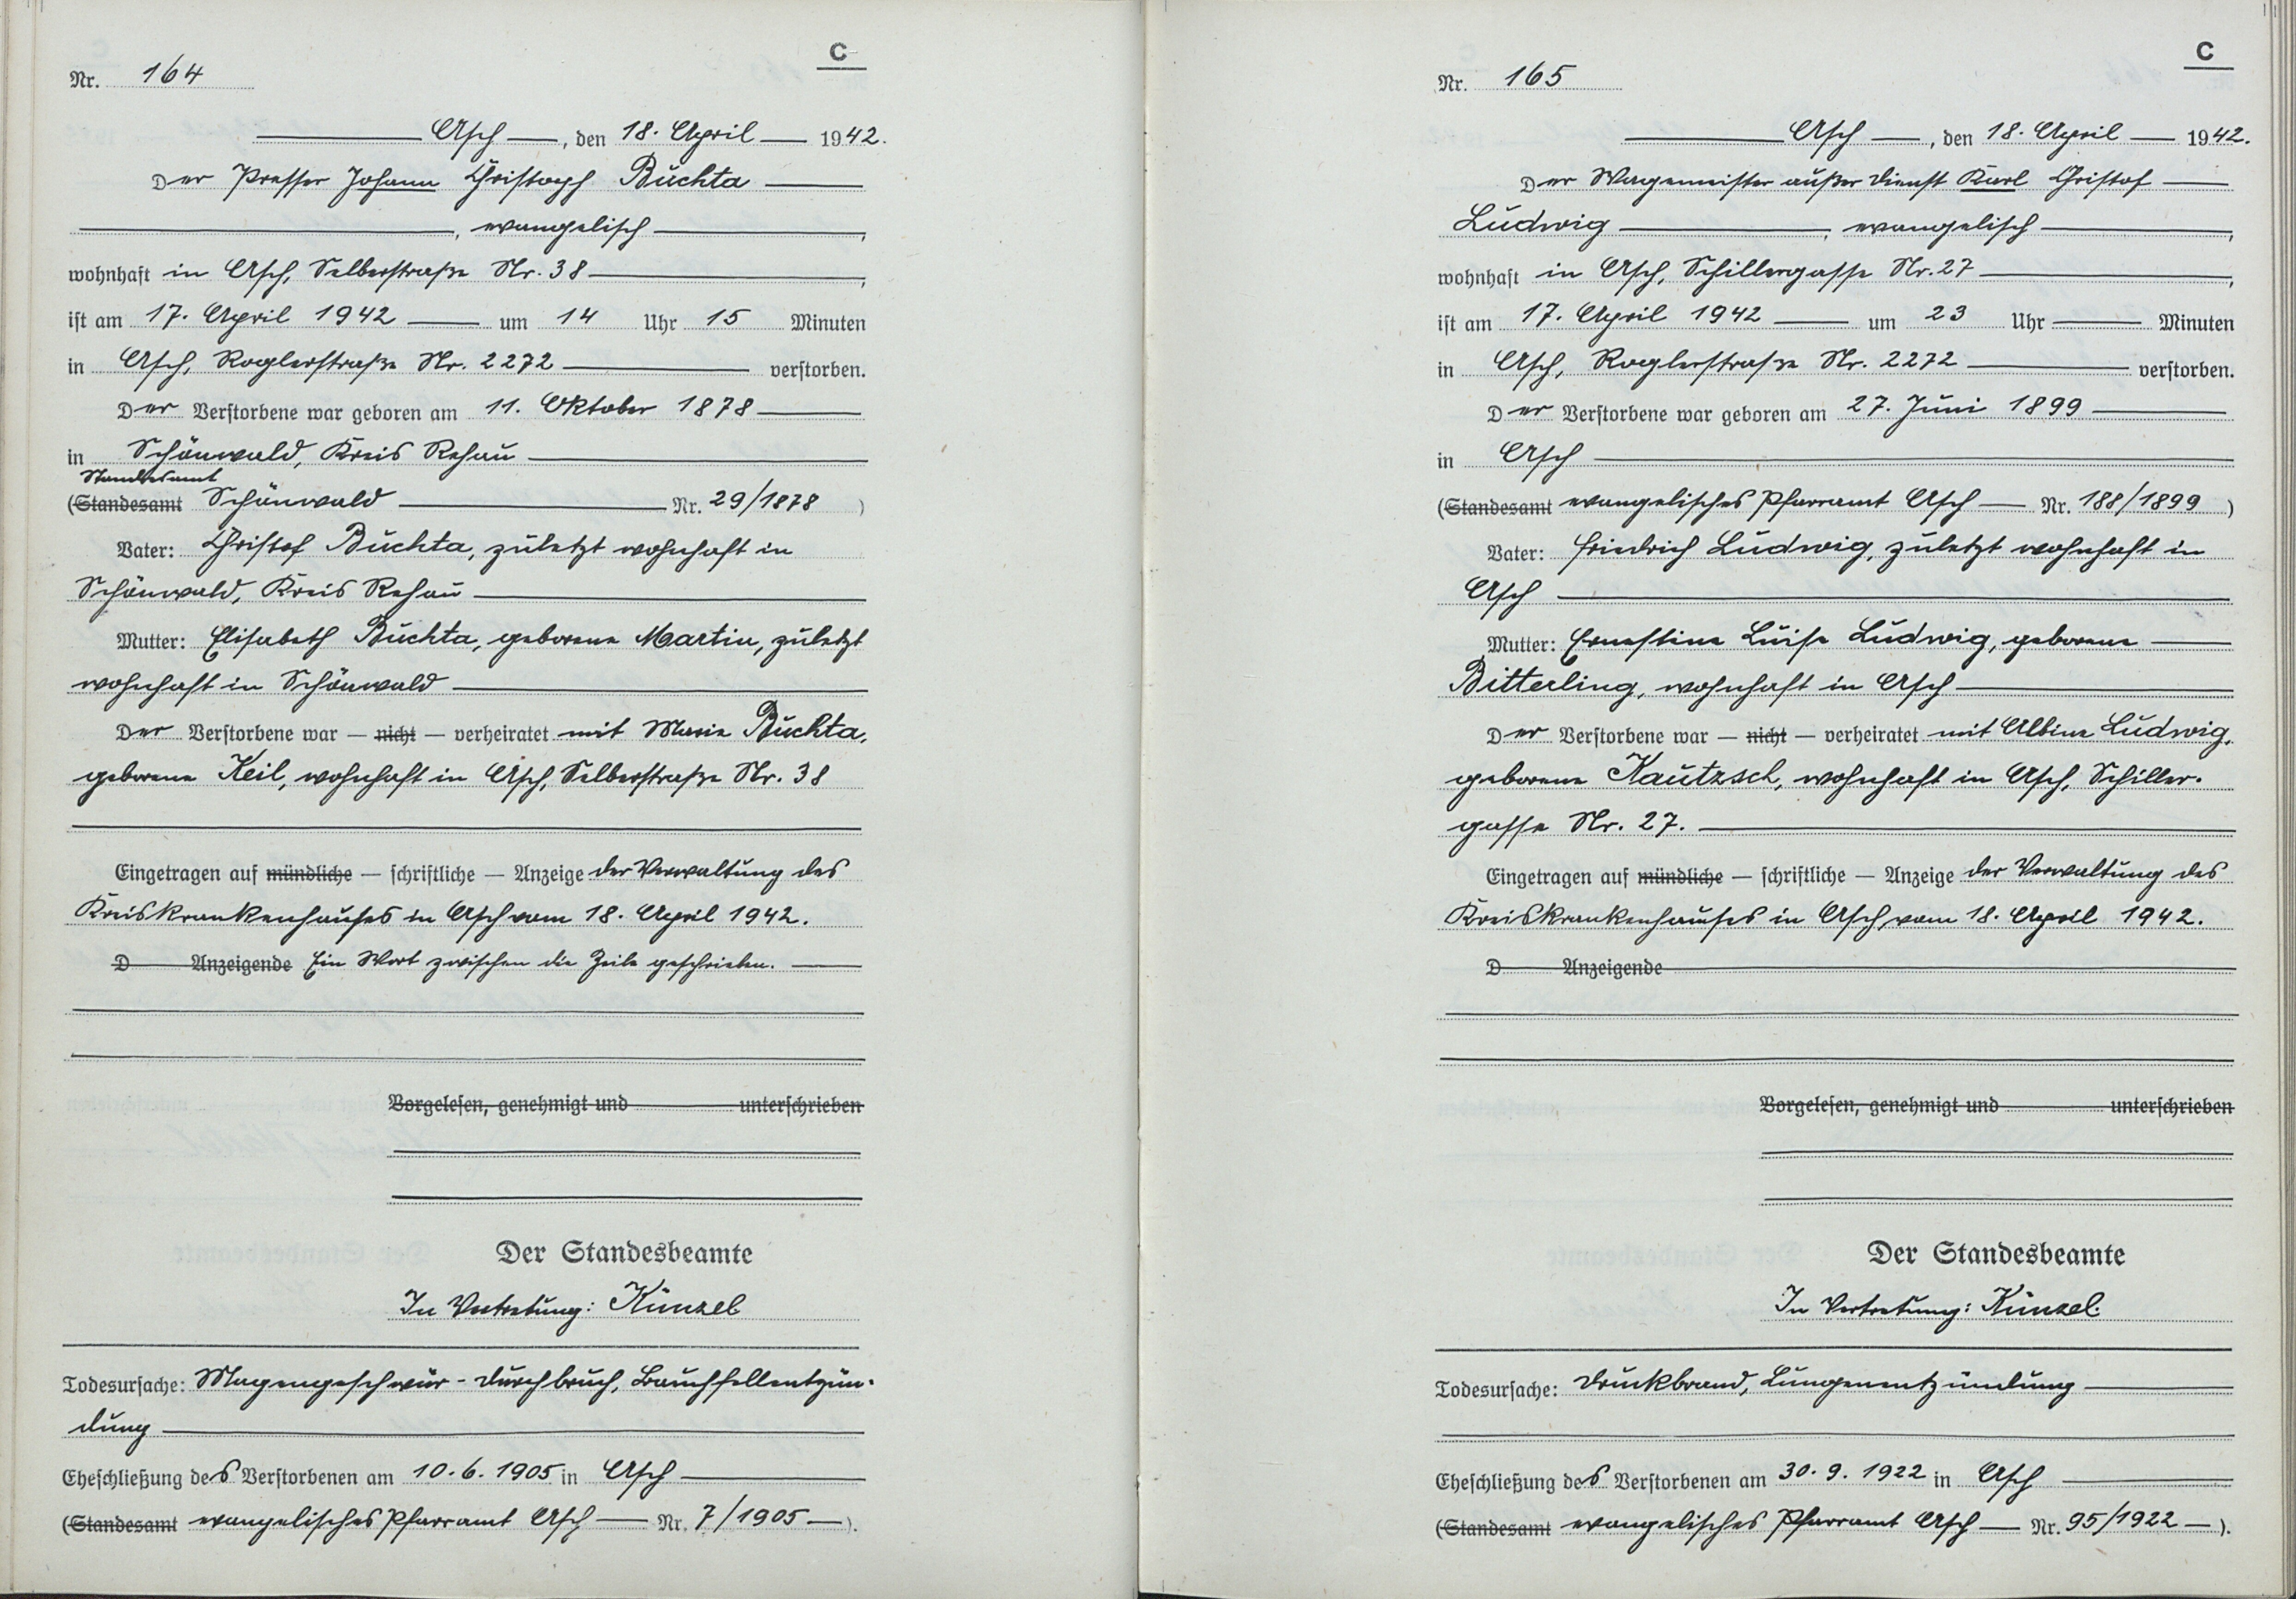 C
Nr. 164
Asch, den 18. April 1942.
Der Presser Johann Christoph Buchta
, evangelisch,
wohnhaft in Asch, Selberstraße Nr. 38,
ist am 17. April 1942 um 14 Uhr 15 Minuten
in Asch, Roglerstraße Nr. 2272 verstorben.
Der Verstorbene war geboren am 11. Oktober 1878
in Schönwald, Kreis Rehau
Standesamt
(Standesamt Schönwald Nr. 29/1878)
Vater: Christof Buchta, zuletzt wohnhaft in
Schönwald, Kreis Rehau
Mutter: Elisabeth Buchta, geborene Martin, zuletzt
wohnhaft in Schönwald
Der Verstorbene war — nicht — verheiratet mit Maria Buchta,
geborene Keil, wohnhaft in Asch, Selberstraße Nr. 38
Eingetragen auf mündliche — schriftliche — Anzeige der Verwaltung des
Kreiskrankenhauses in Asch vom 18. April 1942.
D Anzeigende Ein Wort zwischen die Zeile geschrieben.
Vorgelesen, genehmigt und unterschrieben
Der Standesbeamte
In Vertretung: Künzel
Todesursache: Magengeschwür-durchbruch, Bauchfellentzün-
dung
Eheschließung des Verstorbenen am 10.6.1905 in Asch
(Standesamt evangelisches Pfarramt Asch Nr. 7/1905).
C
Nr. 165
Asch, den 18. April 1942.
Der Wagemeister außer Dienst Karl Christof
Ludwig, evangelisch,
wohnhaft in Asch, Schillergasse Nr. 27,
ist am 17. April 1942 um 23 Uhr Minuten
in Asch, Roglerstraße Nr. 2272 verstorben.
Der Verstorbene war geboren am 27. Juni 1899
in Asch
(Standesamt evangelisches Pfarramt Asch Nr. 188/1899)
Vater: Friedrich Ludwig, zuletzt wohnhaft in
Asch
Mutter: Ernestine Luise Ludwig, geborene
Bitterling, wohnhaft in Asch
Der Verstorbene war — nicht — verheiratet mit Albine Ludwig,
geborene Kautzsch, wohnhaft in Asch, Schiller-
gasse Nr. 27.
Eingetragen auf mündliche — schriftliche — Anzeige der Verwaltung des
Kreiskrankenhauses in Asch vom 18. April 1942.
D Anzeigende
Vorgelesen, genehmigt und unterschrieben
Der Standesbeamte
In Vertretung: Künzel.
Todesursache: Druckbrand, Lungenentzündung
Eheschließung des Verstorbenen am 30.9.1922 in Asch
(Standesamt evangelisches Pfarramt Asch Nr. 95/1922).